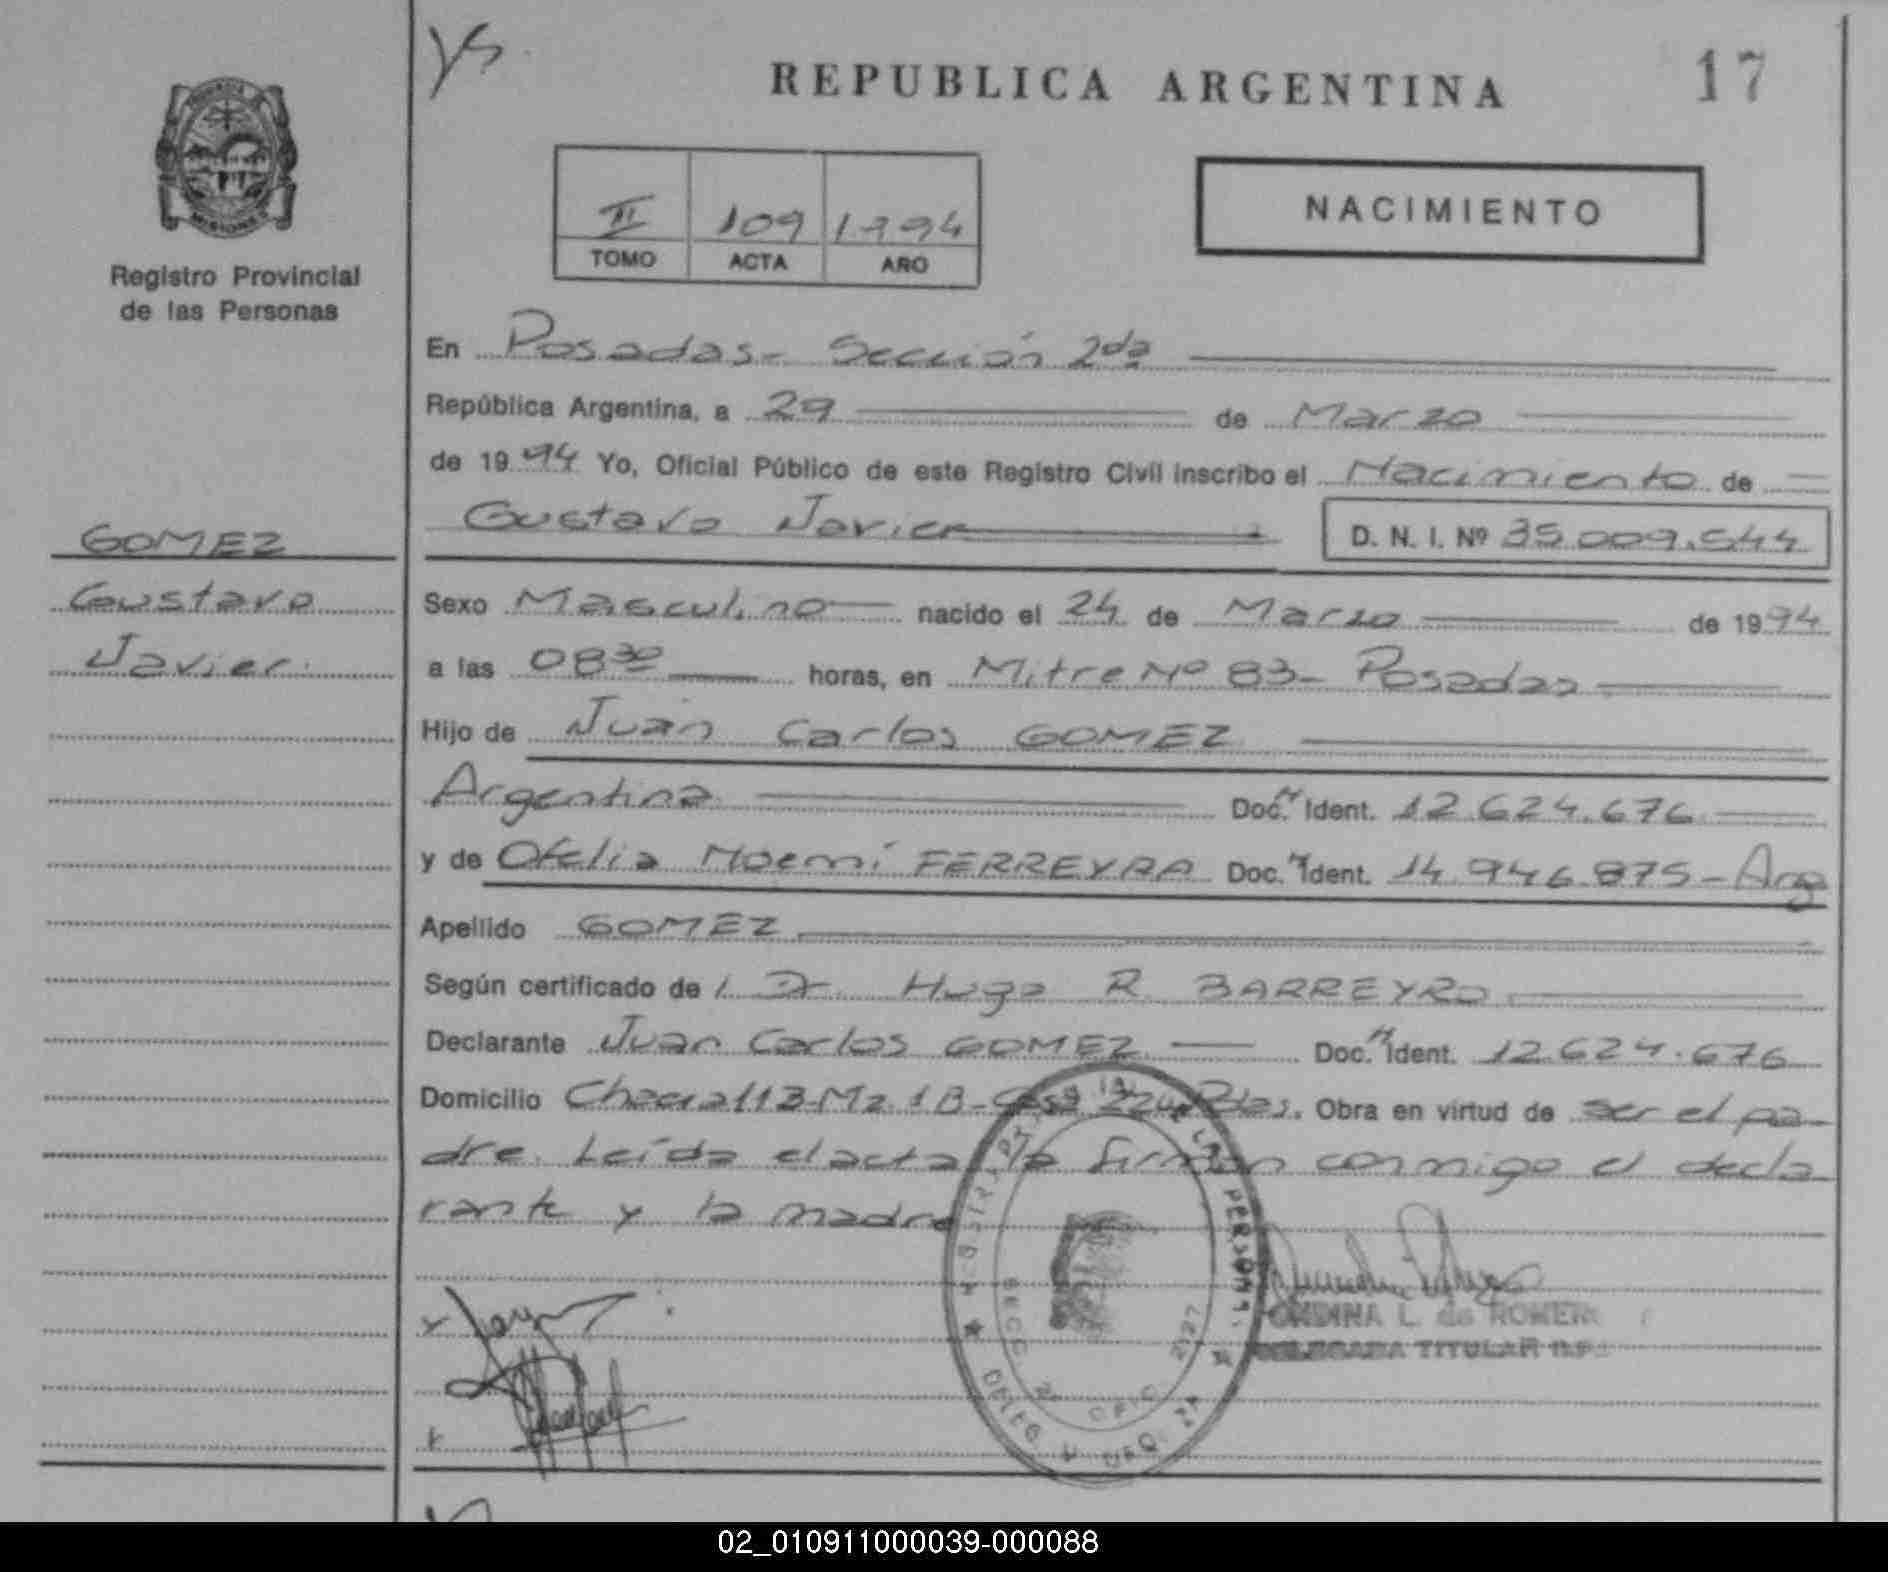 REPUBLICA ARGENTINA
17
MISIONES
Registro Provincial
de las Personas
II 109 1.994
TOMO ACTA AÑO
NACIMIENTO
En Posadas - Sección 2da
República Argentina, a 29 de Marzo
de 1994 Yo, Oficial Público de este Registro Civil inscribo el Nacimiento de
Gustavo Javier D. N. I. Nº 35.009.544
GOMEZ
Gustavo
Javier.
Sexo Masculino nacido el 24 de Marzo de 1994
a las 08 30 horas, en Mitre Nº 83 - Posadas
Hijo de Juan Carlos GOMEZ
Argentina Doc. Ident. 12.624.676
y de Ofelia Noemí FERREYRA Doc. Ident. 14.946.875 - Arg
Apellido GOMEZ
Según certificado de Dr. Hugo R. BARREYRO
Declarante Juan Carlos GOMEZ Doc. Ident. 12.624.676
Domicilio Chacra 113 - Mz. 18 - Casa Pdas. Obra en virtud de ser el pa-
dre. Leída el acta la firman conmigo el decla-
rante y la madre
ONDINA L. de ROMERO
DELEGADA TITULAR
02_010911000039-000088